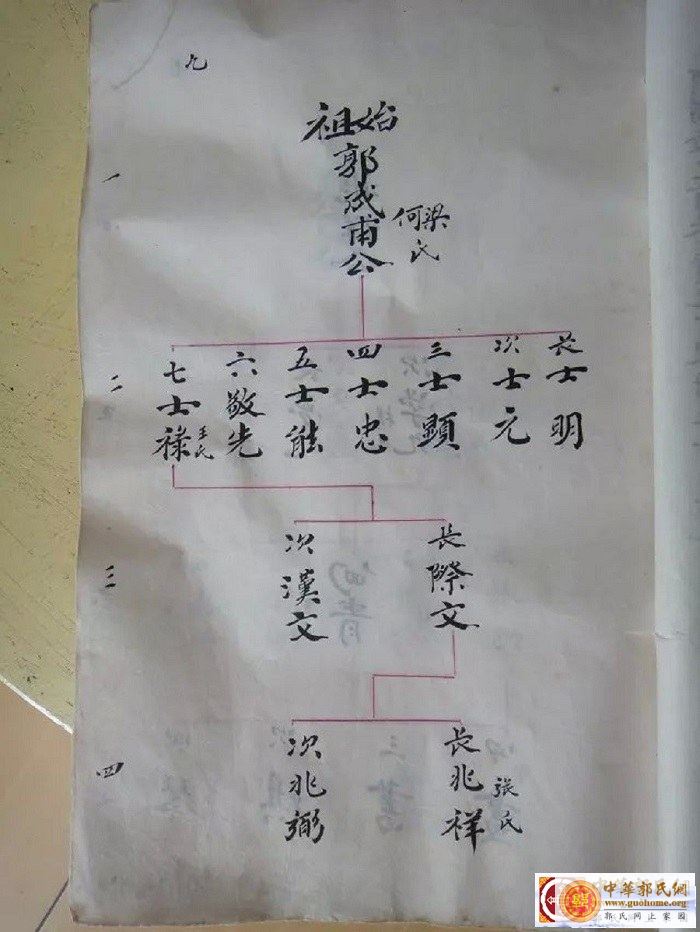 九
始祖
郭成甫公
何梁氏
一
長士明
次士元
三士顯
四士忠
五士能
六敬先
七士祿
王氏
二
長際文
次漢文
三
長兆祥
張氏
次兆弼
四
中華郭氏網
www.guohome.org
郭氏网上家园